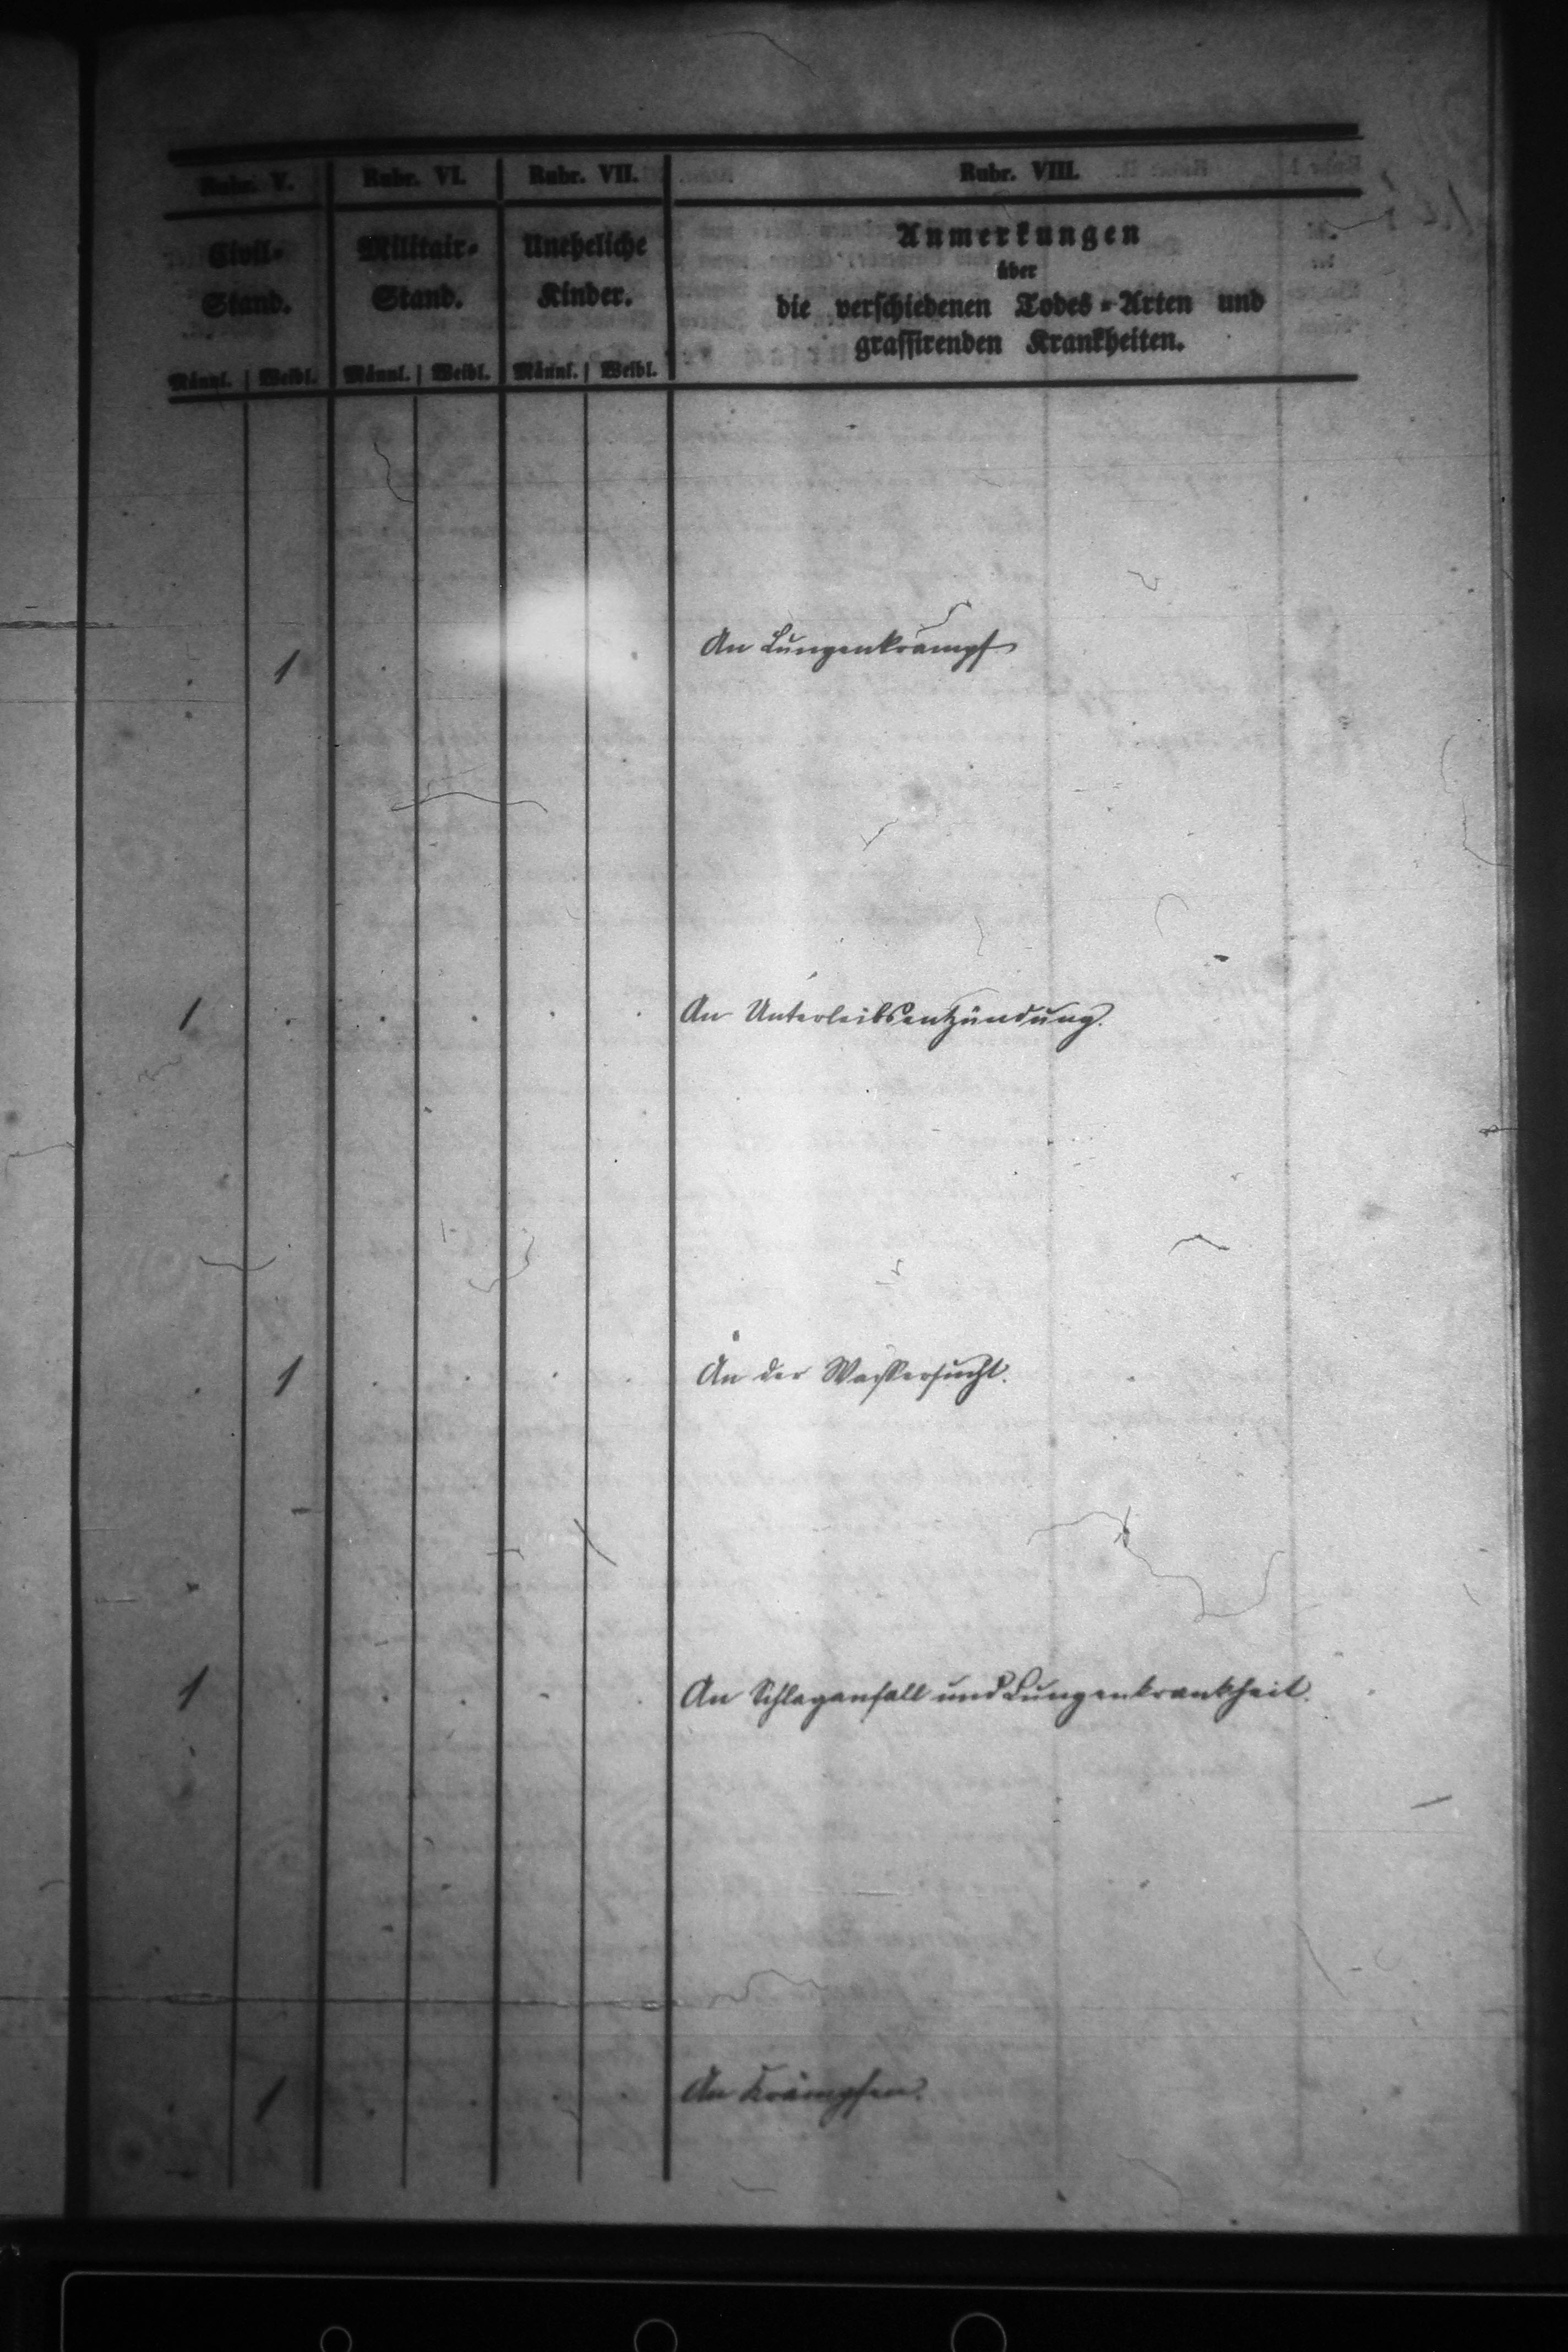 Rubr. V. Rubr. VI. Rubr. VII. Rubr. VIII.
Civil- Militair- Uneheliche Anmerkungen
über
Stand. Stand. Kinder. die verschiedenen Todes-Arten und
grassirenden Krankheiten.
Männl. Weibl. Männl. Weibl. Männl. Weibl.
. 1 . . . An Lungenkrampf
1 . . . . . An Unterleibsentzündung.
. 1 . . . . An der Wassersucht.
1 . . . . . An Schlaganfall und Lungenkrankheit.
. 1 . . . . An Krämpfen.